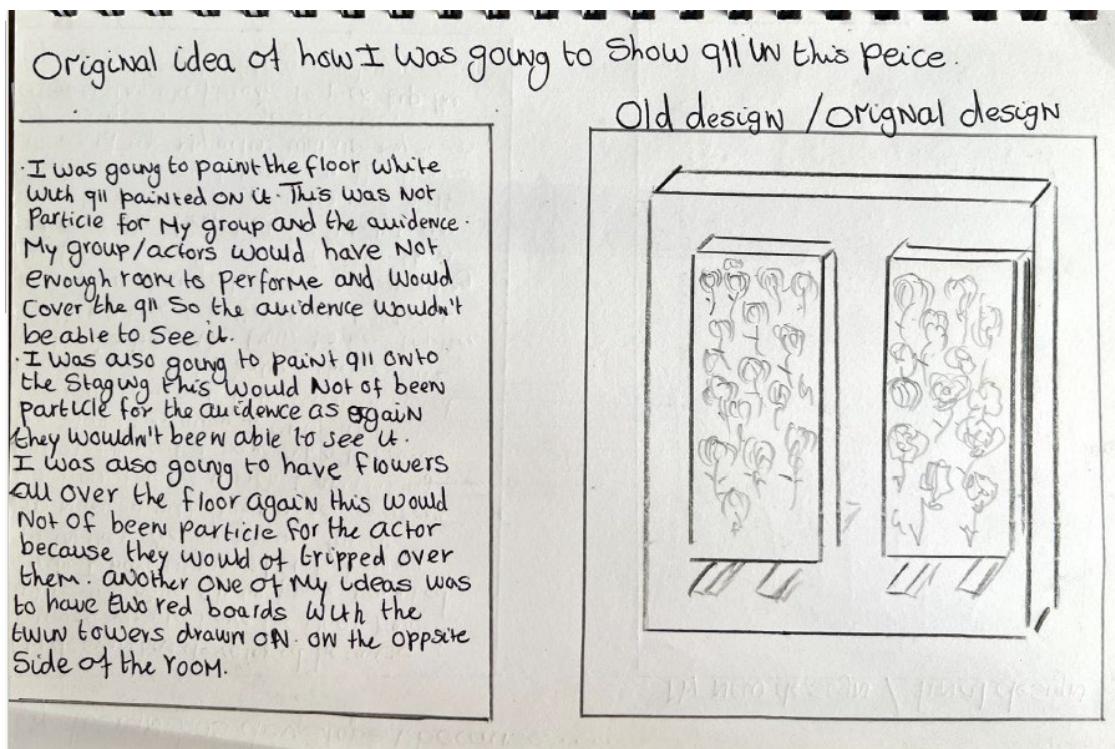 Original idea of how I was going to show 911 in this peice.
Old design / Orignal design
· I was going to paint the floor white
with 911 painted on it. This was Not
Particle for My group and the auidence.
My group/actors would have Not
enough room to performe and would
cover the 911 So the auidence wouldn't
be able to See it.
· I was also going to paint 911 onto
the Staging this would Not of been
particle for the auidence as again
they wouldn't been able to see it.
I was also going to have flowers
all over the floor again this would
Not of been particle for the actor
because they would of tripped over
them. another one of my ideas was
to have two red boards with the
twin towers drawn on. on the oppsite
Side of the room.